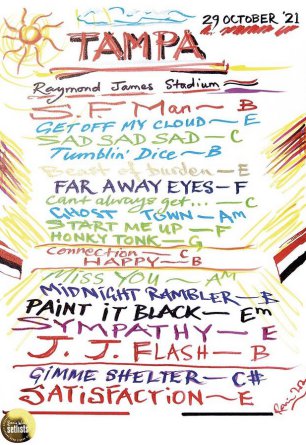 29 OCTOBER '21
TAMPA
Raymond James Stadium
S.F. Man – B
GET OFF MY CLOUD – E
SAD SAD SAD – C
Tumblin' Dice – B
Beast of burden – E
FAR AWAY EYES – F
Cant always get... – C
GHOST TOWN – Am
START ME UP – F
HONKY TONK – G
Connection – C
HAPPY – B
Miss You – Am
MIDNIGHT RAMBLER – B
PAINT IT BLACK – Em
SYMPATHY – E
J. J. FLASH – B
GIMME SHELTER – C#
SATISFACTION – E
setlists